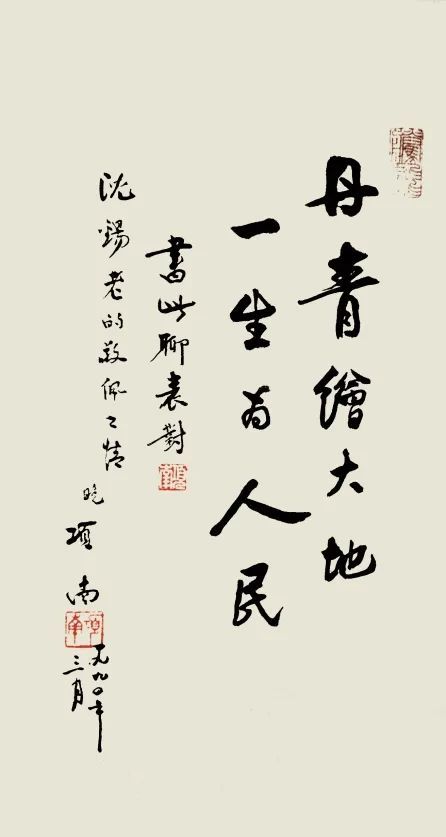 丹青繪大地
一生为人民
書此聊表對
沈錫老的敬佩之情
晚 項南
一九九〇年
三月
項南